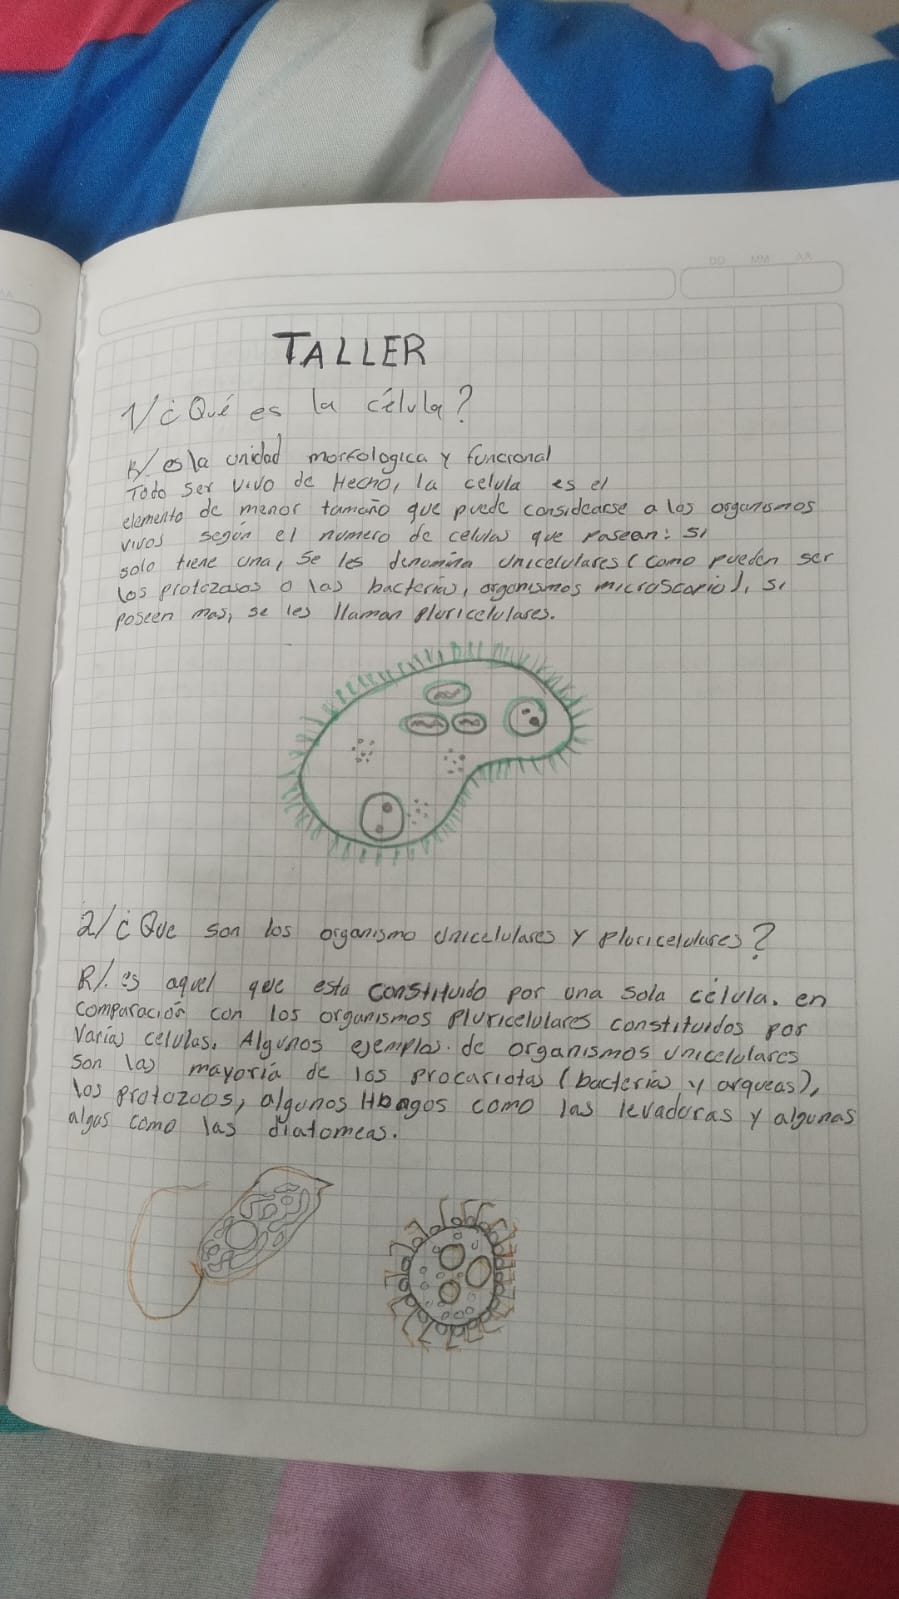 DD MM AA
TALLER
1/¿Qué es la célula?
R/ es la unidad morfologica y funcional
Todo ser vivo de Hecho, la celula es el
elemento de menor tamaño que puede considearse a los organismos
vivos según el numero de celulas que posean: si
solo tiene una, se les denomina unicelulares (como pueden ser
los protozoos o las bacterias, organismos microscopio), si
poseen mas, se les llaman pluricelulares.
2/¿Que son los organismo unicelulares y pluricelulares?
R/. es aquel que esta constituido por una sola célula. en
comparación con los organismos pluricelulares constituidos por
varias celulas. Algunos ejemplos de organismos unicelulares
son las mayoría de los procariotas (bacterias y arqueas),
los protozoos, algunos Hbngos como las levaduras y algunas
algas como las diatomeas.